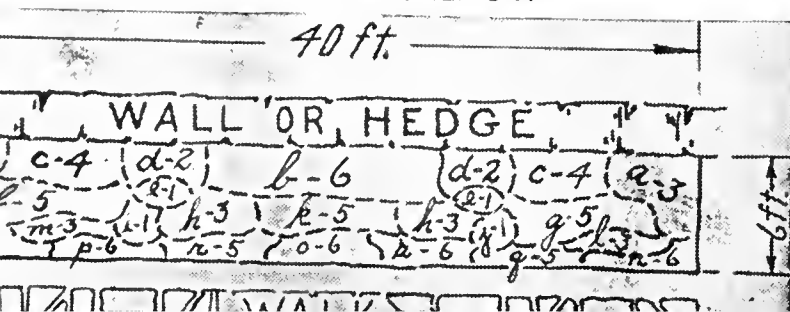 40 ft.
WALL OR HEDGE
c-4 d-2 b-6 d-2 c-4 a-3
e-1 e-1
-5 h-3 k-5 h-3 j-1 g-5 l-3
m-3 i-1
p-6 r-5 o-6 k-6 g-5 n-6
6 ft.
WALK